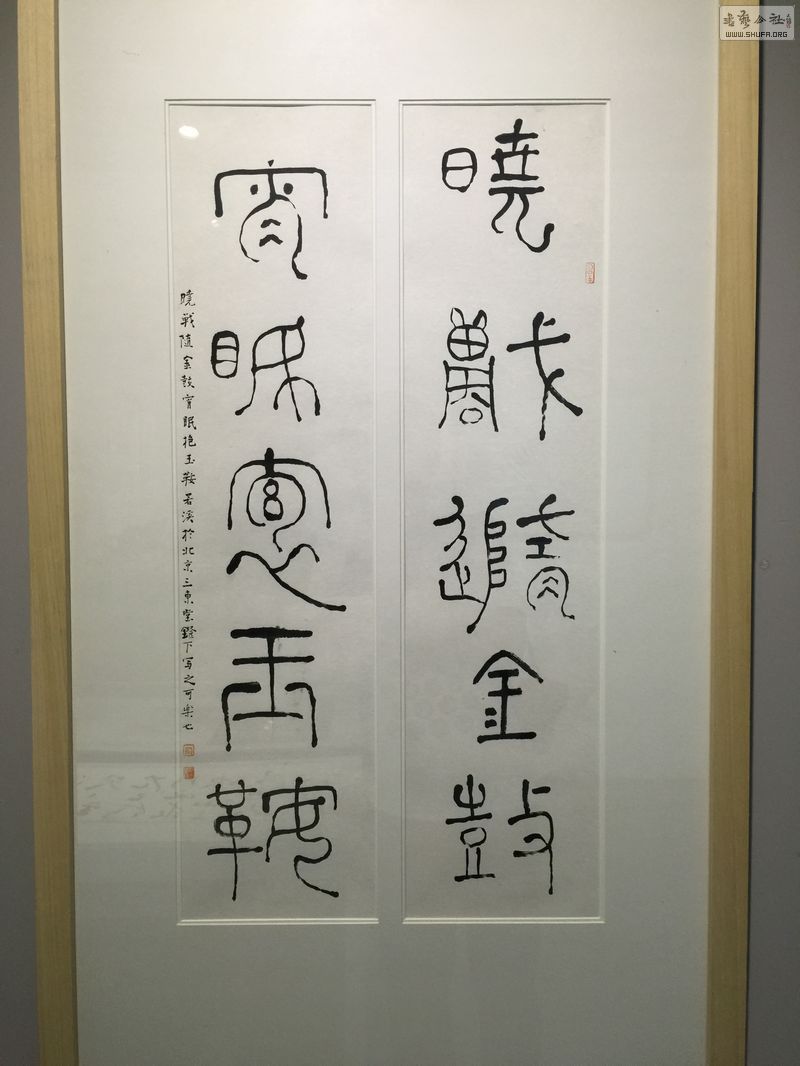 曉戰隨金鼓
宵眠抱玉鞍
曉戰隨金鼓宵眠抱玉鞍若溪於北京三東堂鐙下写之可樂也
書藝公社
WWW.SHUFA.ORG